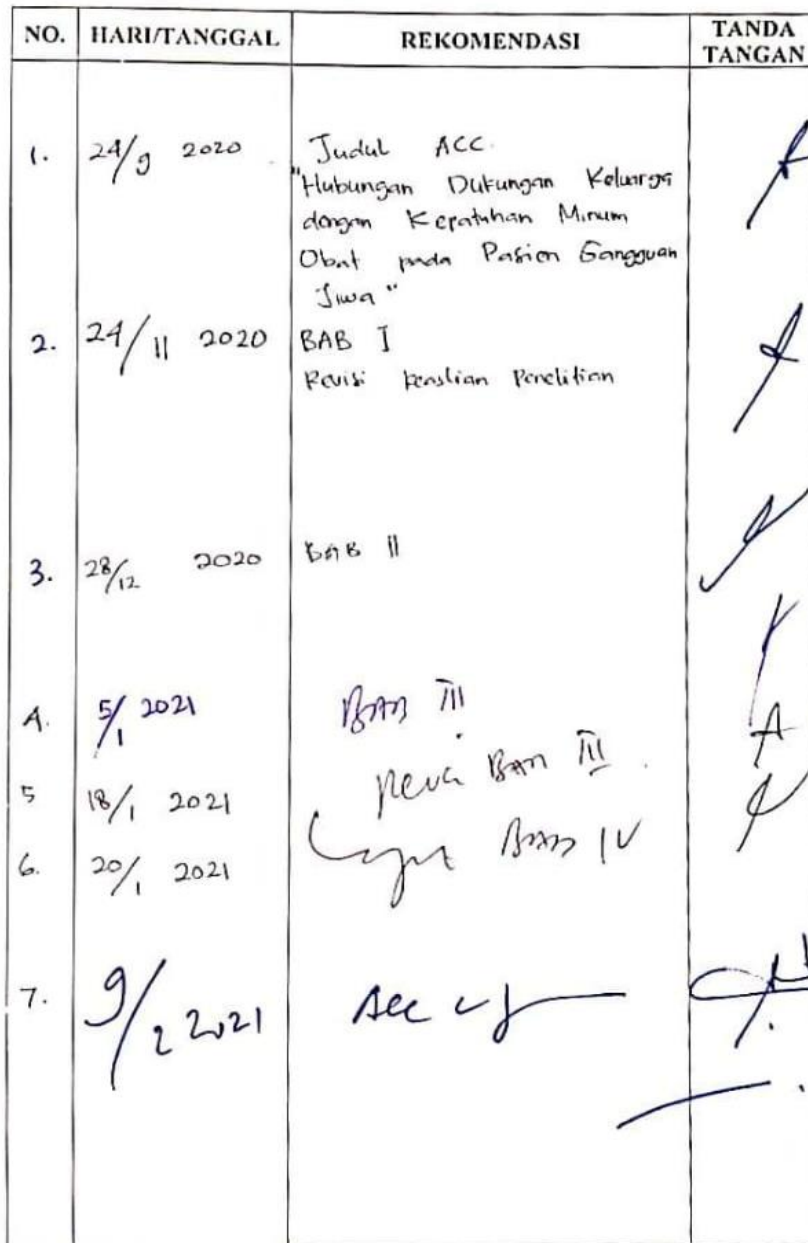 NO. HARI/TANGGAL REKOMENDASI TANDA TANGAN
1. 24/9 2020 Judul ACC.
"Hubungan Dukungan Keluarga
dengan Kepatuhan Minum
Obat pada Pasien Gangguan
Jiwa"
2. 24/11 2020 BAB I
Revisi keaslian Penelitian
3. 28/12 2020 BAB II
4. 5/1 2021 BAB III
5 18/1 2021 BAB III
6. 20/1 2021 BAB IV
7. 9/2 2021 Acc